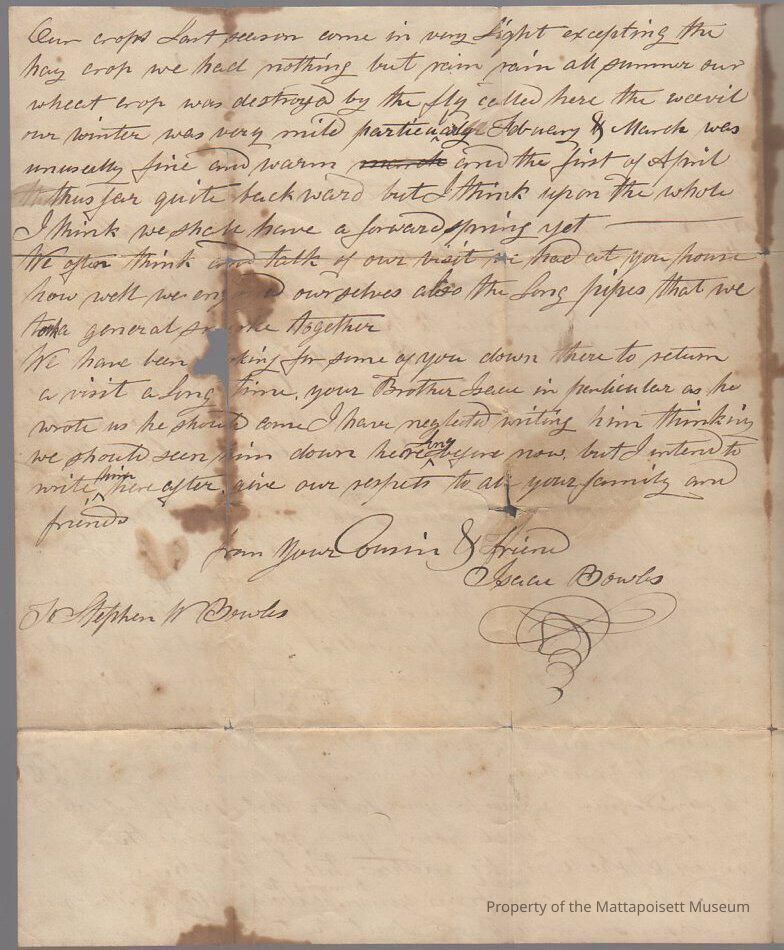 Our crops Last season come in very Light excepting the
hay crop we had nothing but rain rain all summer our
wheat crop was destroyd by the fly called here the weevil
our winter was very mild particulary Febuary & March was
unusually fine and warm march and the first of April
thus far quite backward but I think upon the whole
I think we shall have a forward spring yet
We often think and talk of our visit we had at you house
how well we enj ed ourselves also the Long pipes that we
took a general smoke together
We have been king for some of you down there to return
a visit a Long time, your Brother Isaac in perticular as he
wrote us he should come I have neglected writing him thinking
we should seen him down here long before now, but I intend to
write him here after, give our respets to all your family and
friends
from Your Cousin & friend
Isaac Bowles
To Stephen W Bowles
Property of the Mattapoisett Museum